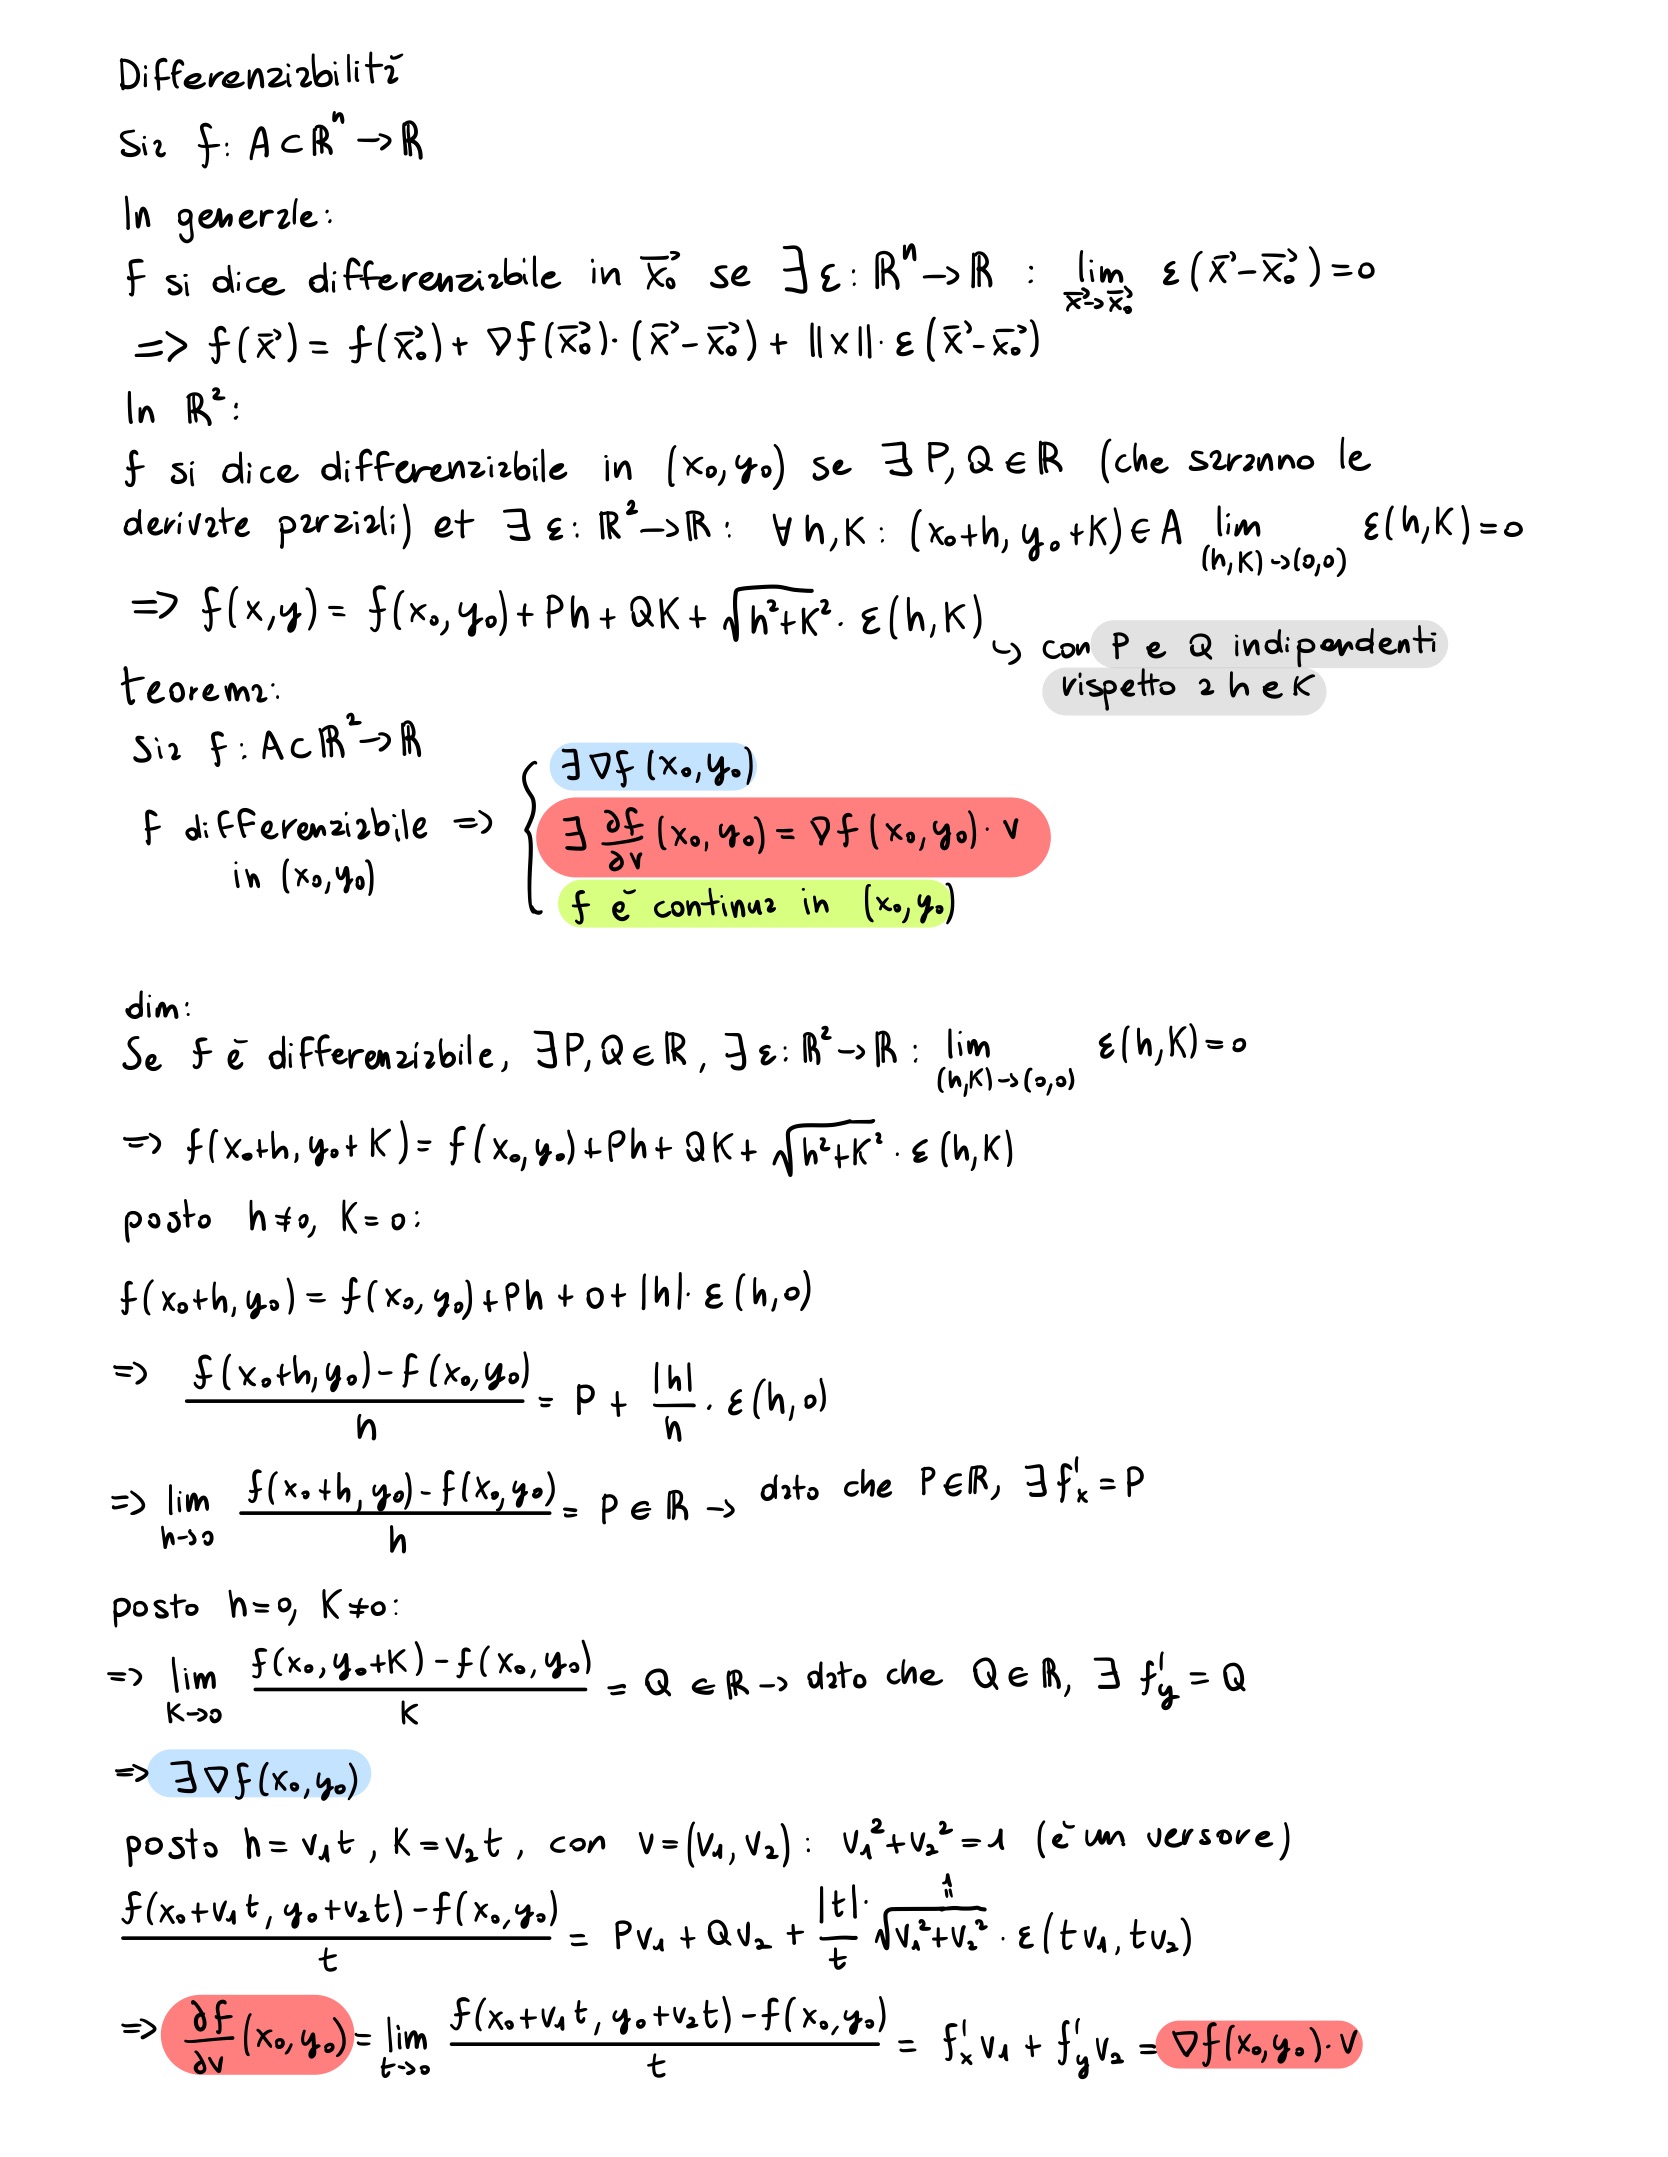 Differenziabilità
Sia f: A⊂ℝⁿ→ℝ
In generale:
f si dice differenziabile in x⃗₀ se ∃ ε: ℝⁿ→ℝ : lim_{x⃗→x⃗₀} ε(x⃗-x⃗₀)=0
=> f(x⃗) = f(x⃗₀) + ∇f(x⃗₀)·(x⃗-x⃗₀) + ||x||·ε(x⃗-x⃗₀)
In ℝ²:
f si dice differenziabile in (x₀,y₀) se ∃ P,Q∈ℝ (che saranno le
derivate parziali) et ∃ ε: ℝ²→ℝ: ∀h,K: (x₀+h, y₀+K)∈A lim_{(h,K)→(0,0)} ε(h,K)=0
=> f(x,y) = f(x₀,y₀)+Ph+QK+√(h²+K²)·ε(h,K)
↳ con P e Q indipendenti
rispetto a h e K
teorema:
Sia f: A⊂ℝ²→ℝ
∃∇f(x₀,y₀)
f differenziabile => { ∃ ∂f/∂v (x₀,y₀) = ∇f(x₀,y₀)·v
in (x₀,y₀)
f è continua in (x₀,y₀)
dim:
Se f è differenziabile, ∃P,Q∈ℝ, ∃ε: ℝ²→ℝ : lim_{(h,K)→(0,0)} ε(h,K)=0
=> f(x₀+h, y₀+K)= f(x₀,y₀)+Ph+QK+√(h²+K²)·ε(h,K)
posto h≠0, K=0:
f(x₀+h,y₀) = f(x₀,y₀)+Ph+0+|h|·ε(h,0)
=> (f(x₀+h,y₀)-f(x₀,y₀))/h = P + |h|/h · ε(h,0)
=> lim_{h→0} (f(x₀+h,y₀)-f(x₀,y₀))/h = P∈ℝ → dato che P∈ℝ, ∃f'ₓ=P
posto h=0, K≠0:
=> lim_{K→0} (f(x₀,y₀+K)-f(x₀,y₀))/K = Q∈ℝ → dato che Q∈ℝ, ∃ f'_y = Q
=> ∃∇f(x₀,y₀)
posto h=v₁t, K=v₂t, con v=(v₁,v₂): v₁²+v₂²=1 (è un versore)
(f(x₀+v₁t, y₀+v₂t)-f(x₀,y₀))/t = Pv₁+Qv₂+ |t|·/t √(v₁²+v₂²) (=1) · ε(tv₁,tv₂)
=> ∂f/∂v (x₀,y₀) = lim_{t→0} (f(x₀+v₁t, y₀+v₂t)-f(x₀,y₀))/t = f'ₓv₁+f'_yv₂ = ∇f(x₀,y₀)·v